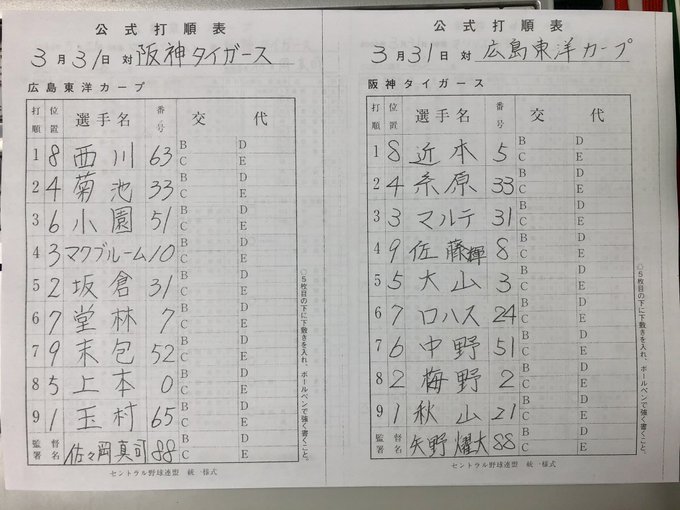 公式打順表
3月31日 対 阪神タイガース
広島東洋カープ
打順 位置 選手名 番号 交代
1 8 西川 63 B C D E
2 4 菊池 33 B C D E
3 6 小園 51 B C D E
4 3 マクブルーム 10 B C D E
5 2 坂倉 31 B C D E
6 7 堂林 7 B C D E
7 9 末包 52 B C D E
8 5 上本 0 B C D E
9 1 玉村 65 B C D E
監督署名 佐々岡真司 88 B C D E
○5枚目の下に下敷きを入れ、ボールペンで強く書くこと。
セントラル野球連盟 統一様式
公式打順表
3月31日 対 広島東洋カープ
阪神タイガース
打順 位置 選手名 番号 交代
1 8 近本 5 B C D E
2 4 糸原 33 B C D E
3 3 マルテ 31 B C D E
4 9 佐藤輝 8 B C D E
5 5 大山 3 B C D E
6 7 ロハス 24 B C D E
7 6 中野 51 B C D E
8 2 梅野 2 B C D E
9 1 秋山 21 B C D E
監督署名 矢野燿大 88 B C D E
○5枚目の下に下敷きを入れ、ボールペンで強く書くこと。
セントラル野球連盟 統一様式